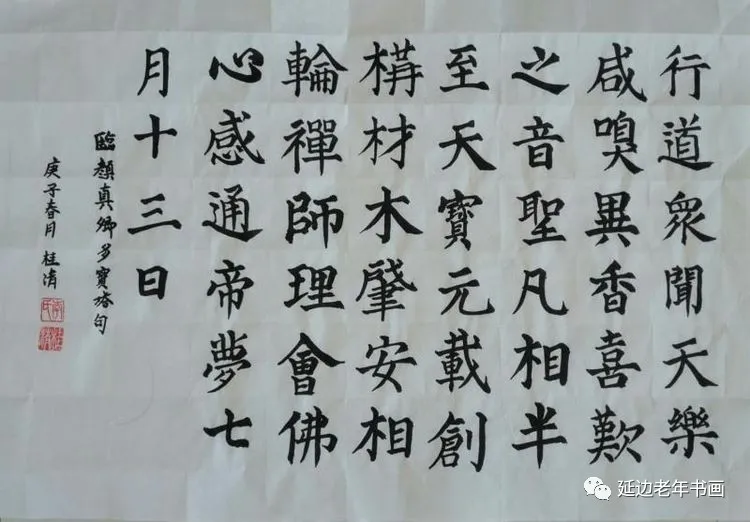 行道衆聞天樂
咸嗅異香喜歎
之音聖凡相半
至天寶元載創
構材木肇安相
輪禪師理會佛
心感通帝夢七
月十三日
臨顏真卿多寶塔句
庚子春月 桂清
延边老年书画